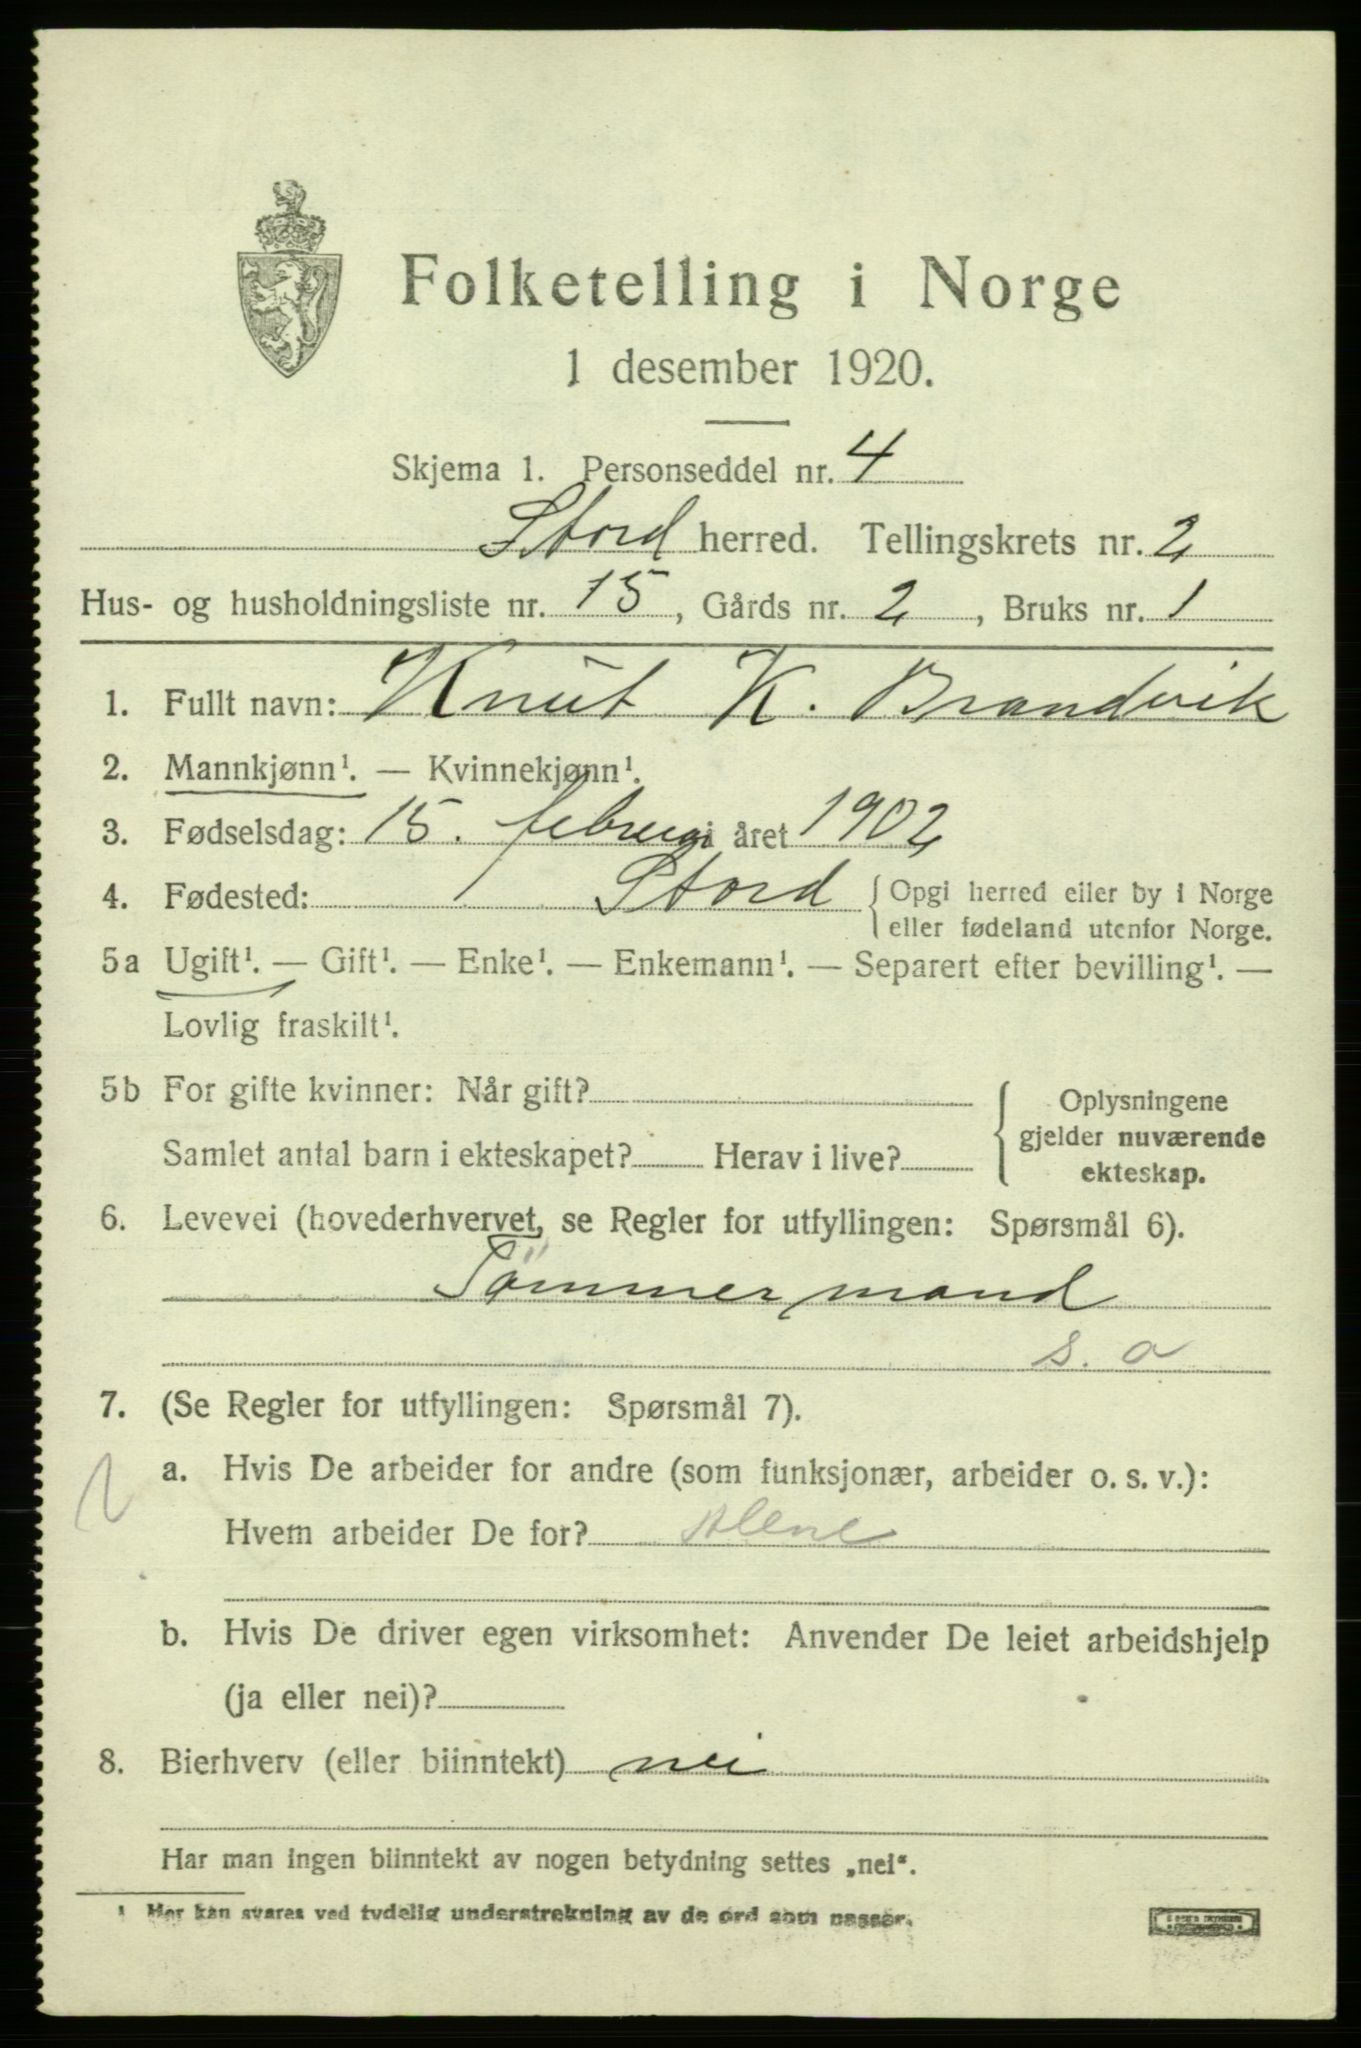 Folketelling i Norge
1 desember 1920.
Skjema 1. Personseddel nr. 4
Stord herred. Tellingskrets nr. 2
Hus- og husholdningsliste nr. 15, Gårds nr. 2, Bruks nr. 1
1. Fullt navn: Knut K. Brandvik
2. Mannkjønn¹. — Kvinnekjønn¹.
3. Fødselsdag: 15. februar i året 1902
4. Fødested: Stord { Opgi herred eller by i Norge
eller fødeland utenfor Norge.
5a Ugift¹. — Gift¹. — Enke¹. — Enkemann¹. — Separert efter bevilling¹. —
Lovlig fraskilt¹.
5b For gifte kvinner: Når gift?
Samlet antal barn i ekteskapet? Herav i live?
{ Oplysningene
gjelder nuværende
ekteskap.
6. Levevei (hovederhvervet, se Regler for utfyllingen: Spørsmål 6).
Tömmermand
s. a
7. (Se Regler for utfyllingen: Spørsmål 7).
a. Hvis De arbeider for andre (som funksjonær, arbeider o. s. v.):
Hvem arbeider De for? Alene
b. Hvis De driver egen virksomhet: Anvender De leiet arbeidshjelp
(ja eller nei)?
8. Bierhverv (eller biinntekt) nei
Har man ingen biinntekt av nogen betydning settes „nei“.
¹ Her kan svares ved tydelig understrekning av de ord som passer.